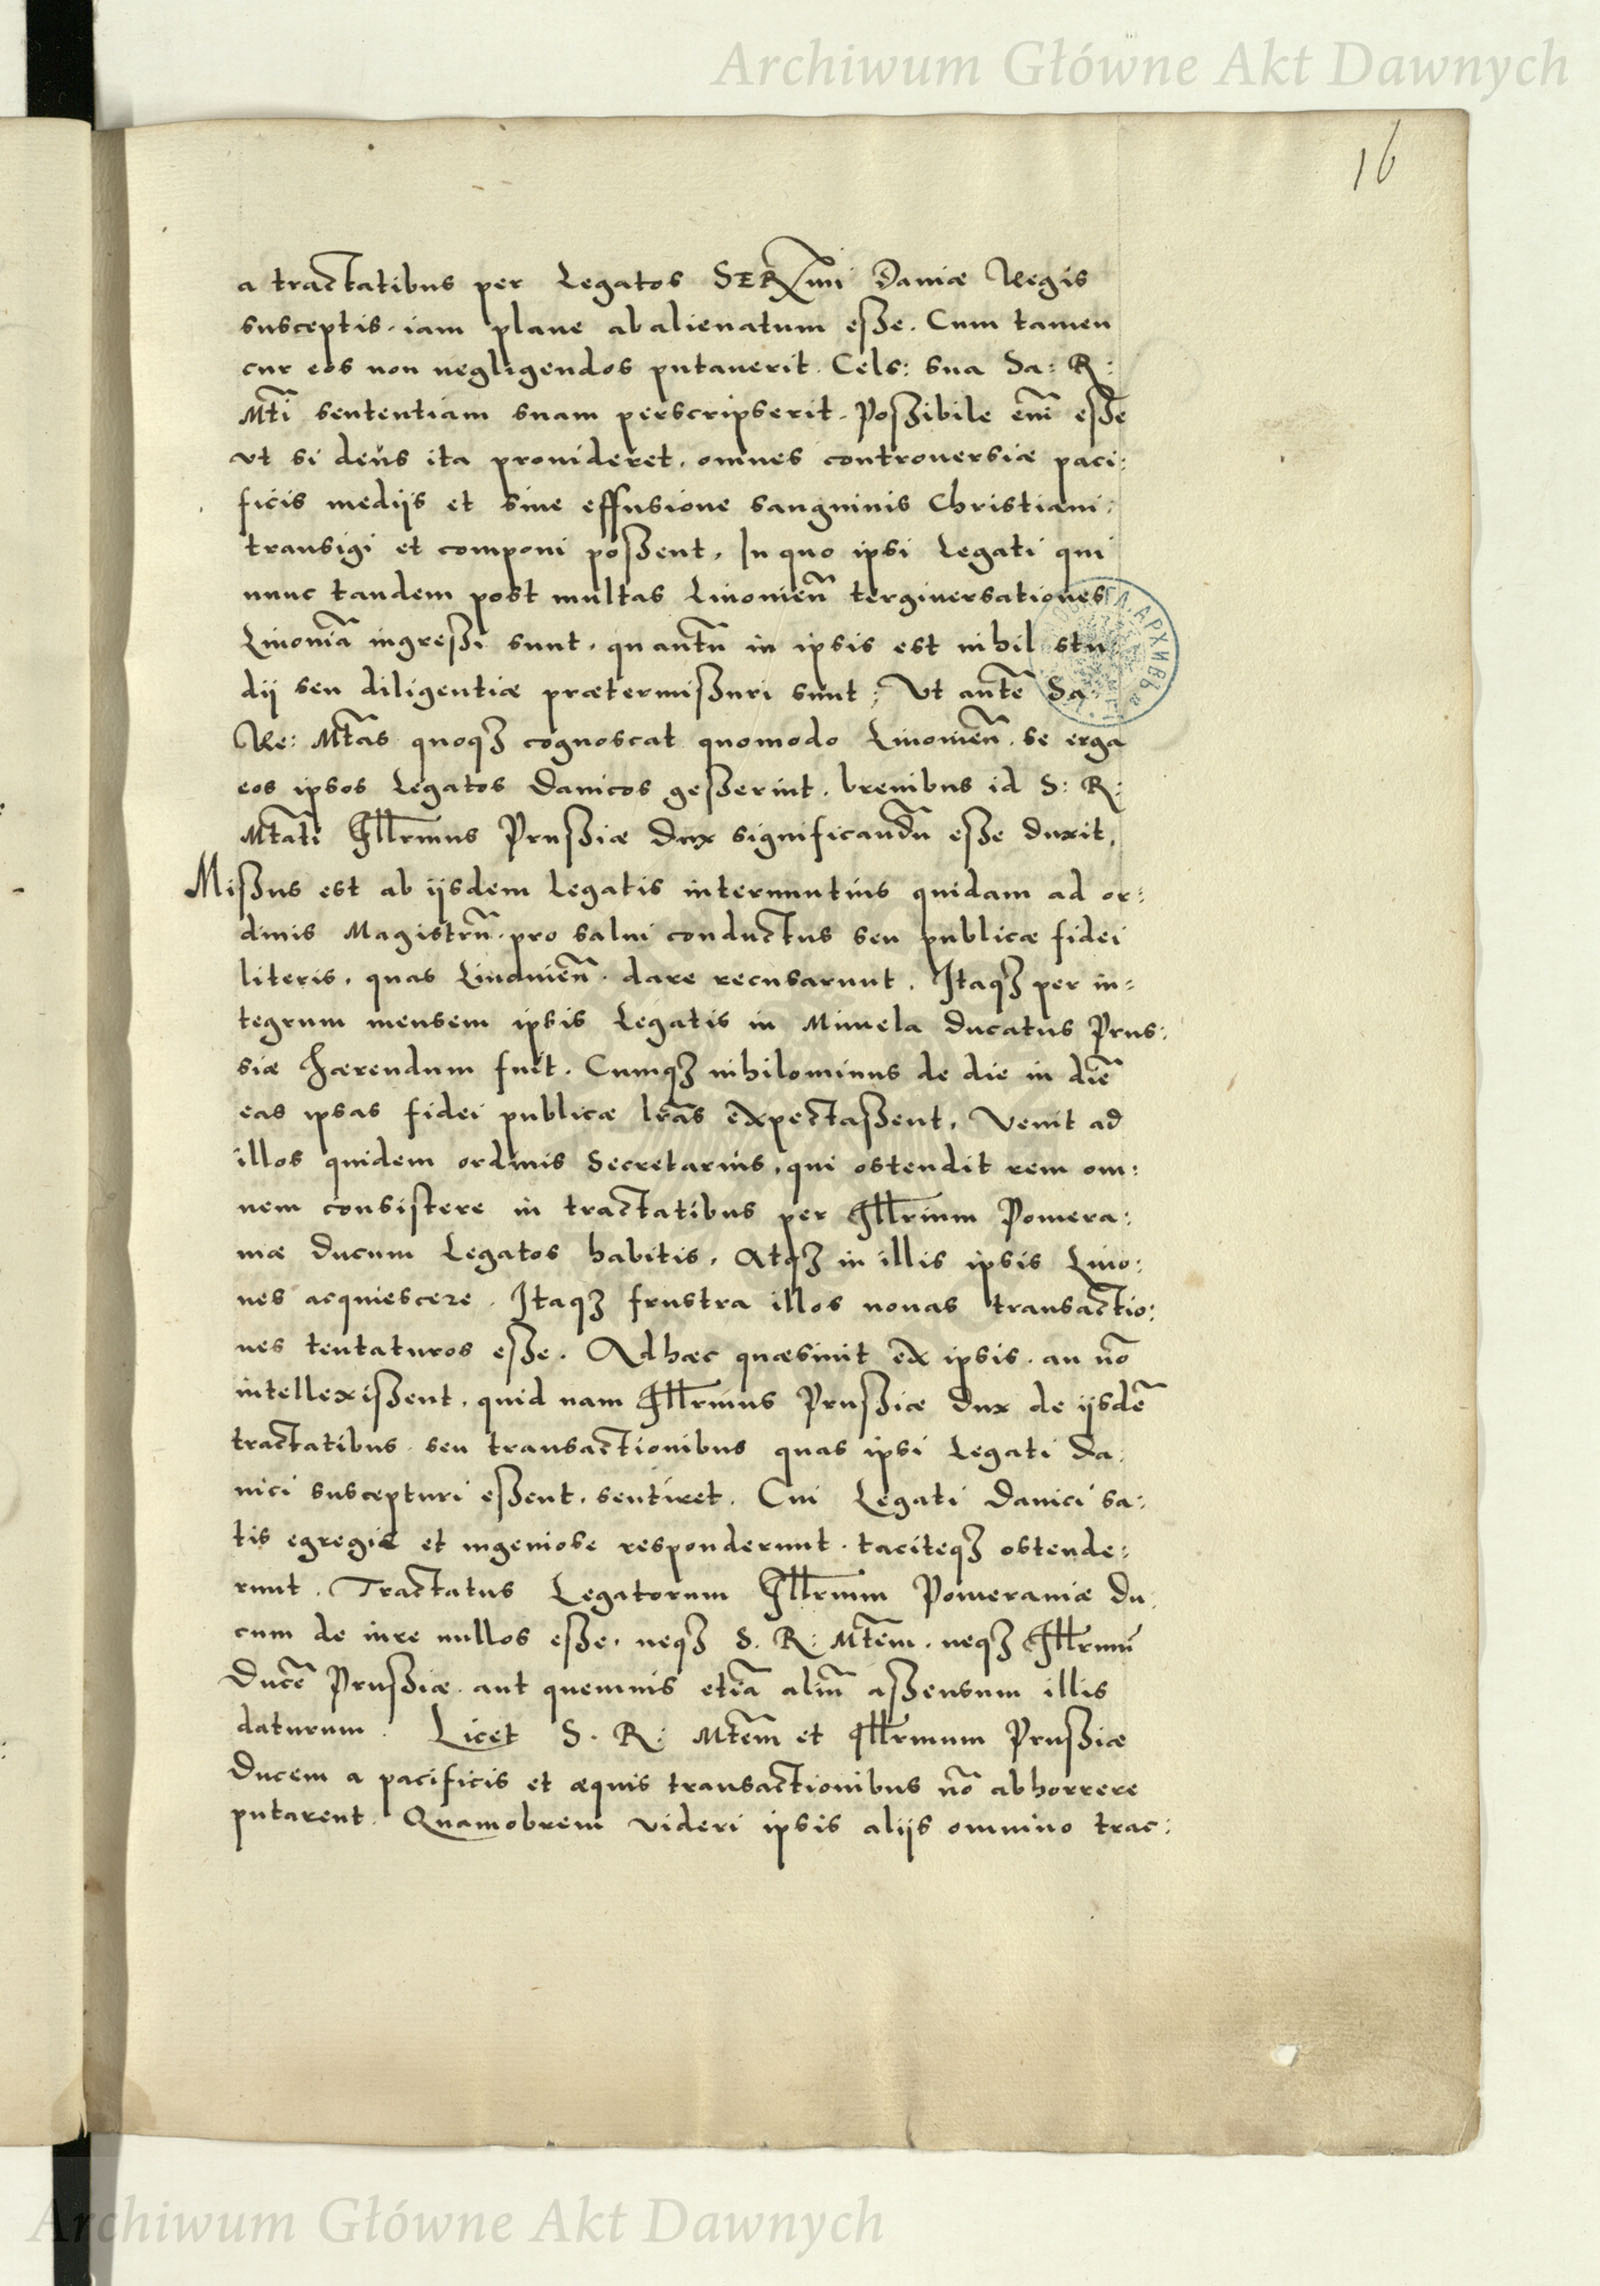 Archiwum Główne Akt Dawnych
16
a tractatibus per Legatos SERmi Daniæ Regis
susceptis. iam plane abalienatum esse. Cum tamen
cur eos non negligendos putauerit. Cels: sua Sa: R:
Mti sententiam suam perscripserit. Possibile em̄ esse
vt si deus ita prouideret. omnes controuersiæ paci:
ficis medijs et sine effusione sanguinis Christiani:
transigi et componi possent. In quo ipsi Legati qui
nunc tandem post multas Liuonień tergiuersationes
Liuoniā ingressi sunt. quantū in ipsis est nihil stu
dij seu diligentiæ prætermissuri sunt; Vt autē Sa:
Re: Mtas quoqꝫ cognoscat quomodo Liuonień. se erga
eos ipsos Legatos Danicos gesserint. breuibus id S: R:
Mtati Illrmus Prussiæ Dux significandū esse duxit.
Missus est ab ijsdem Legatis internuntius quidam ad or:
dinis Magistrū. pro salui conductus seu publicæ fidei
literis. quas Liuonień. dare recusarunt. Itaqꝫ per in:
tegrum mensem ipsis Legatis in Mimela Ducatus Prus:
siæ hærendum fuit. Cumqꝫ nihilominus de die in diē
eas ipsas fidei publicæ lr̄as expectassent. Venit ad
illos quidem ordinis Secretarius. qui ostendit rem om:
nem consistere in tractatibus per Illrmum Pomera:
niæ Ducum Legatos habitis. Atqꝫ in illis ipsis Liuo:
nes acquiescere. Itaqꝫ frustra illos nouas transactio:
nes tentaturos esse. Ad hæc quæsiuit ex ipsis. an nō
intellexissent. quid nam Illrmus Prussiæ Dux de ijsdē
tractatibus seu transactionibus quas ipsi Legati Da:
nici suscepturi essent. sentiret. Cui Legati Danici sa:
tis egregie et ingeniose responderunt. taciteqꝫ ostende:
runt. Tractatus Legatorum Illrmum Pomeraniæ Du:
cum de iure nullos esse. neqꝫ S. R: Mtem. neqꝫ Illrmū
Ducē Prussiæ. aut quemuis etiā aliū assensum illis
daturum. Licet S. R: Mtem et Illrmum Prussiæ
Ducem a pacificis et æquis transactionibus nō abhorrere
putarent. Quamobrem videri ipsis alijs omnino trac:
Archiwum Główne Akt Dawnych